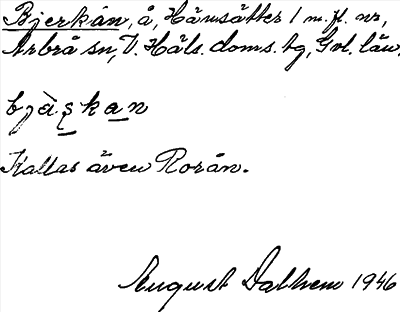 Bjerkån, å, Hänsätter 1 m.fl. nr,
Arbrå sn, V. Häls. doms. tg, Gvl. län.
bjäs̨kan
Kallas även Rorån.
August Dalhem 1946